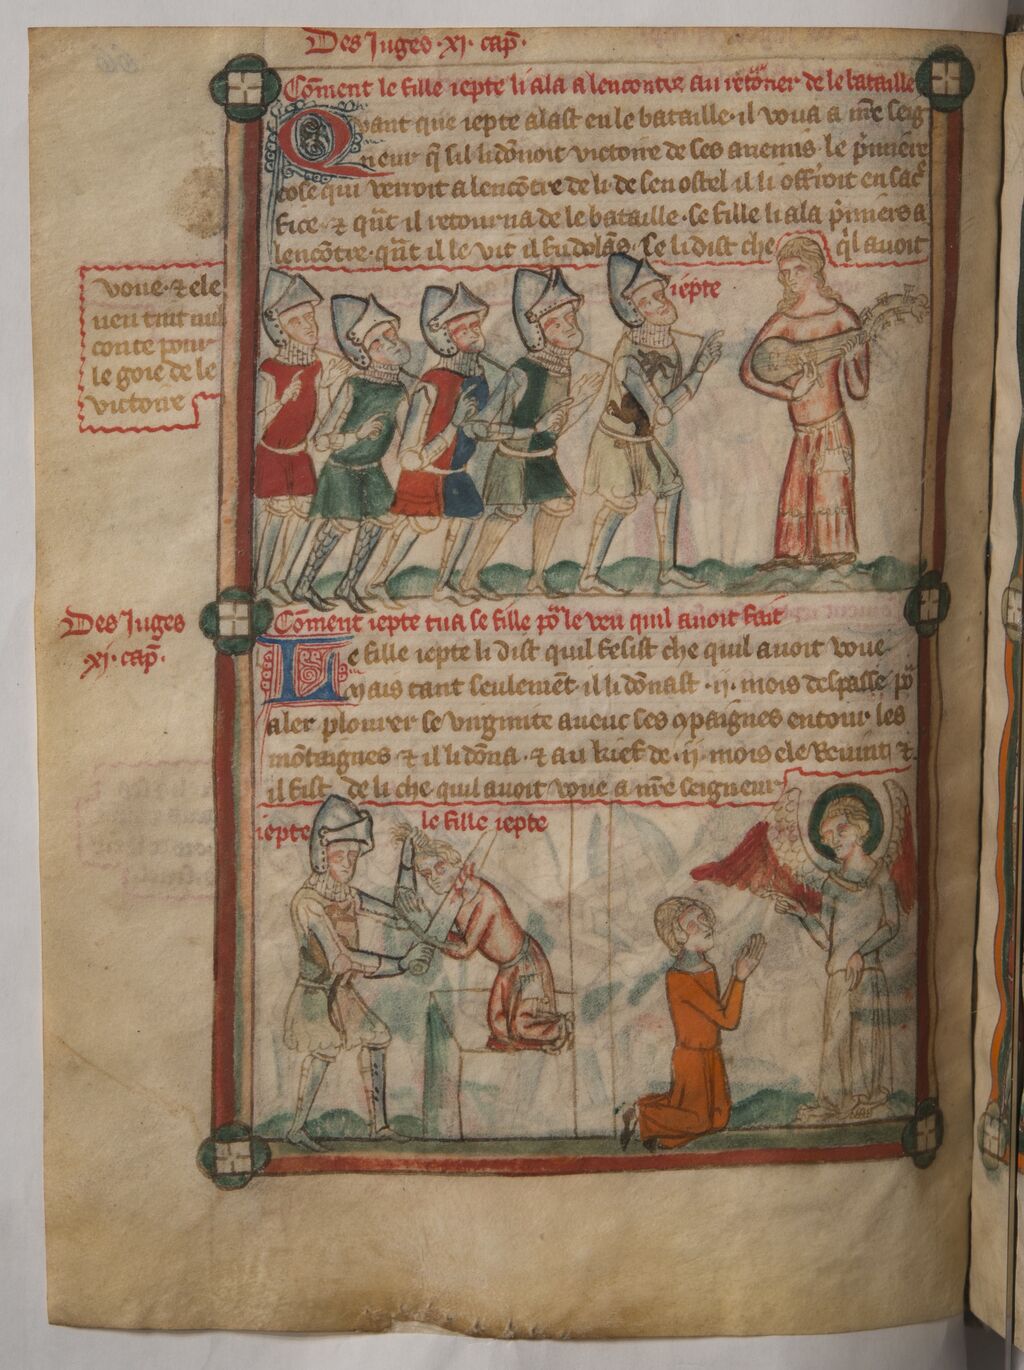 Des Juges · xi · cap̄ ·
Cōment le fille iepte li ala a lencontre au retōrner de le bataille
Quant que iepte alast en le bataille · il voua a nr̄e seig
neur q̄ sil li dōnoit victoire de ses anemis · le p̄miere
cose qui venroit a lencōtre de li de sen ostel il li offriroit en sac
fice · ⁊ qn̄t il retourna de le bataille · se fille li ala p̄miers a
lencōtre · qn̄t il le vit il fu dolās · ⁊ li dist che q̄l auoit
voue · ⁊ ele
conte pour
le goie de le
victoire
iepte
Des Juges
xi · cap̄ ·
Cōment iepte tua se fille po᷑ le veu quil auoit fait
Le fille iepte li dist quil fesist che quil auoit voue
Mais tant seulemēt · il li dōnast · ij · mois despasse po᷑
aler plourer se virginite auenc ses ꝯpaignes entour les
mōtaignes ⁊ il li dōna · ⁊ au kief de · ij · mois ele reuint ⁊
il fist de li che quil auoit voue a nr̄e seigneur
iepte
le fille iepte